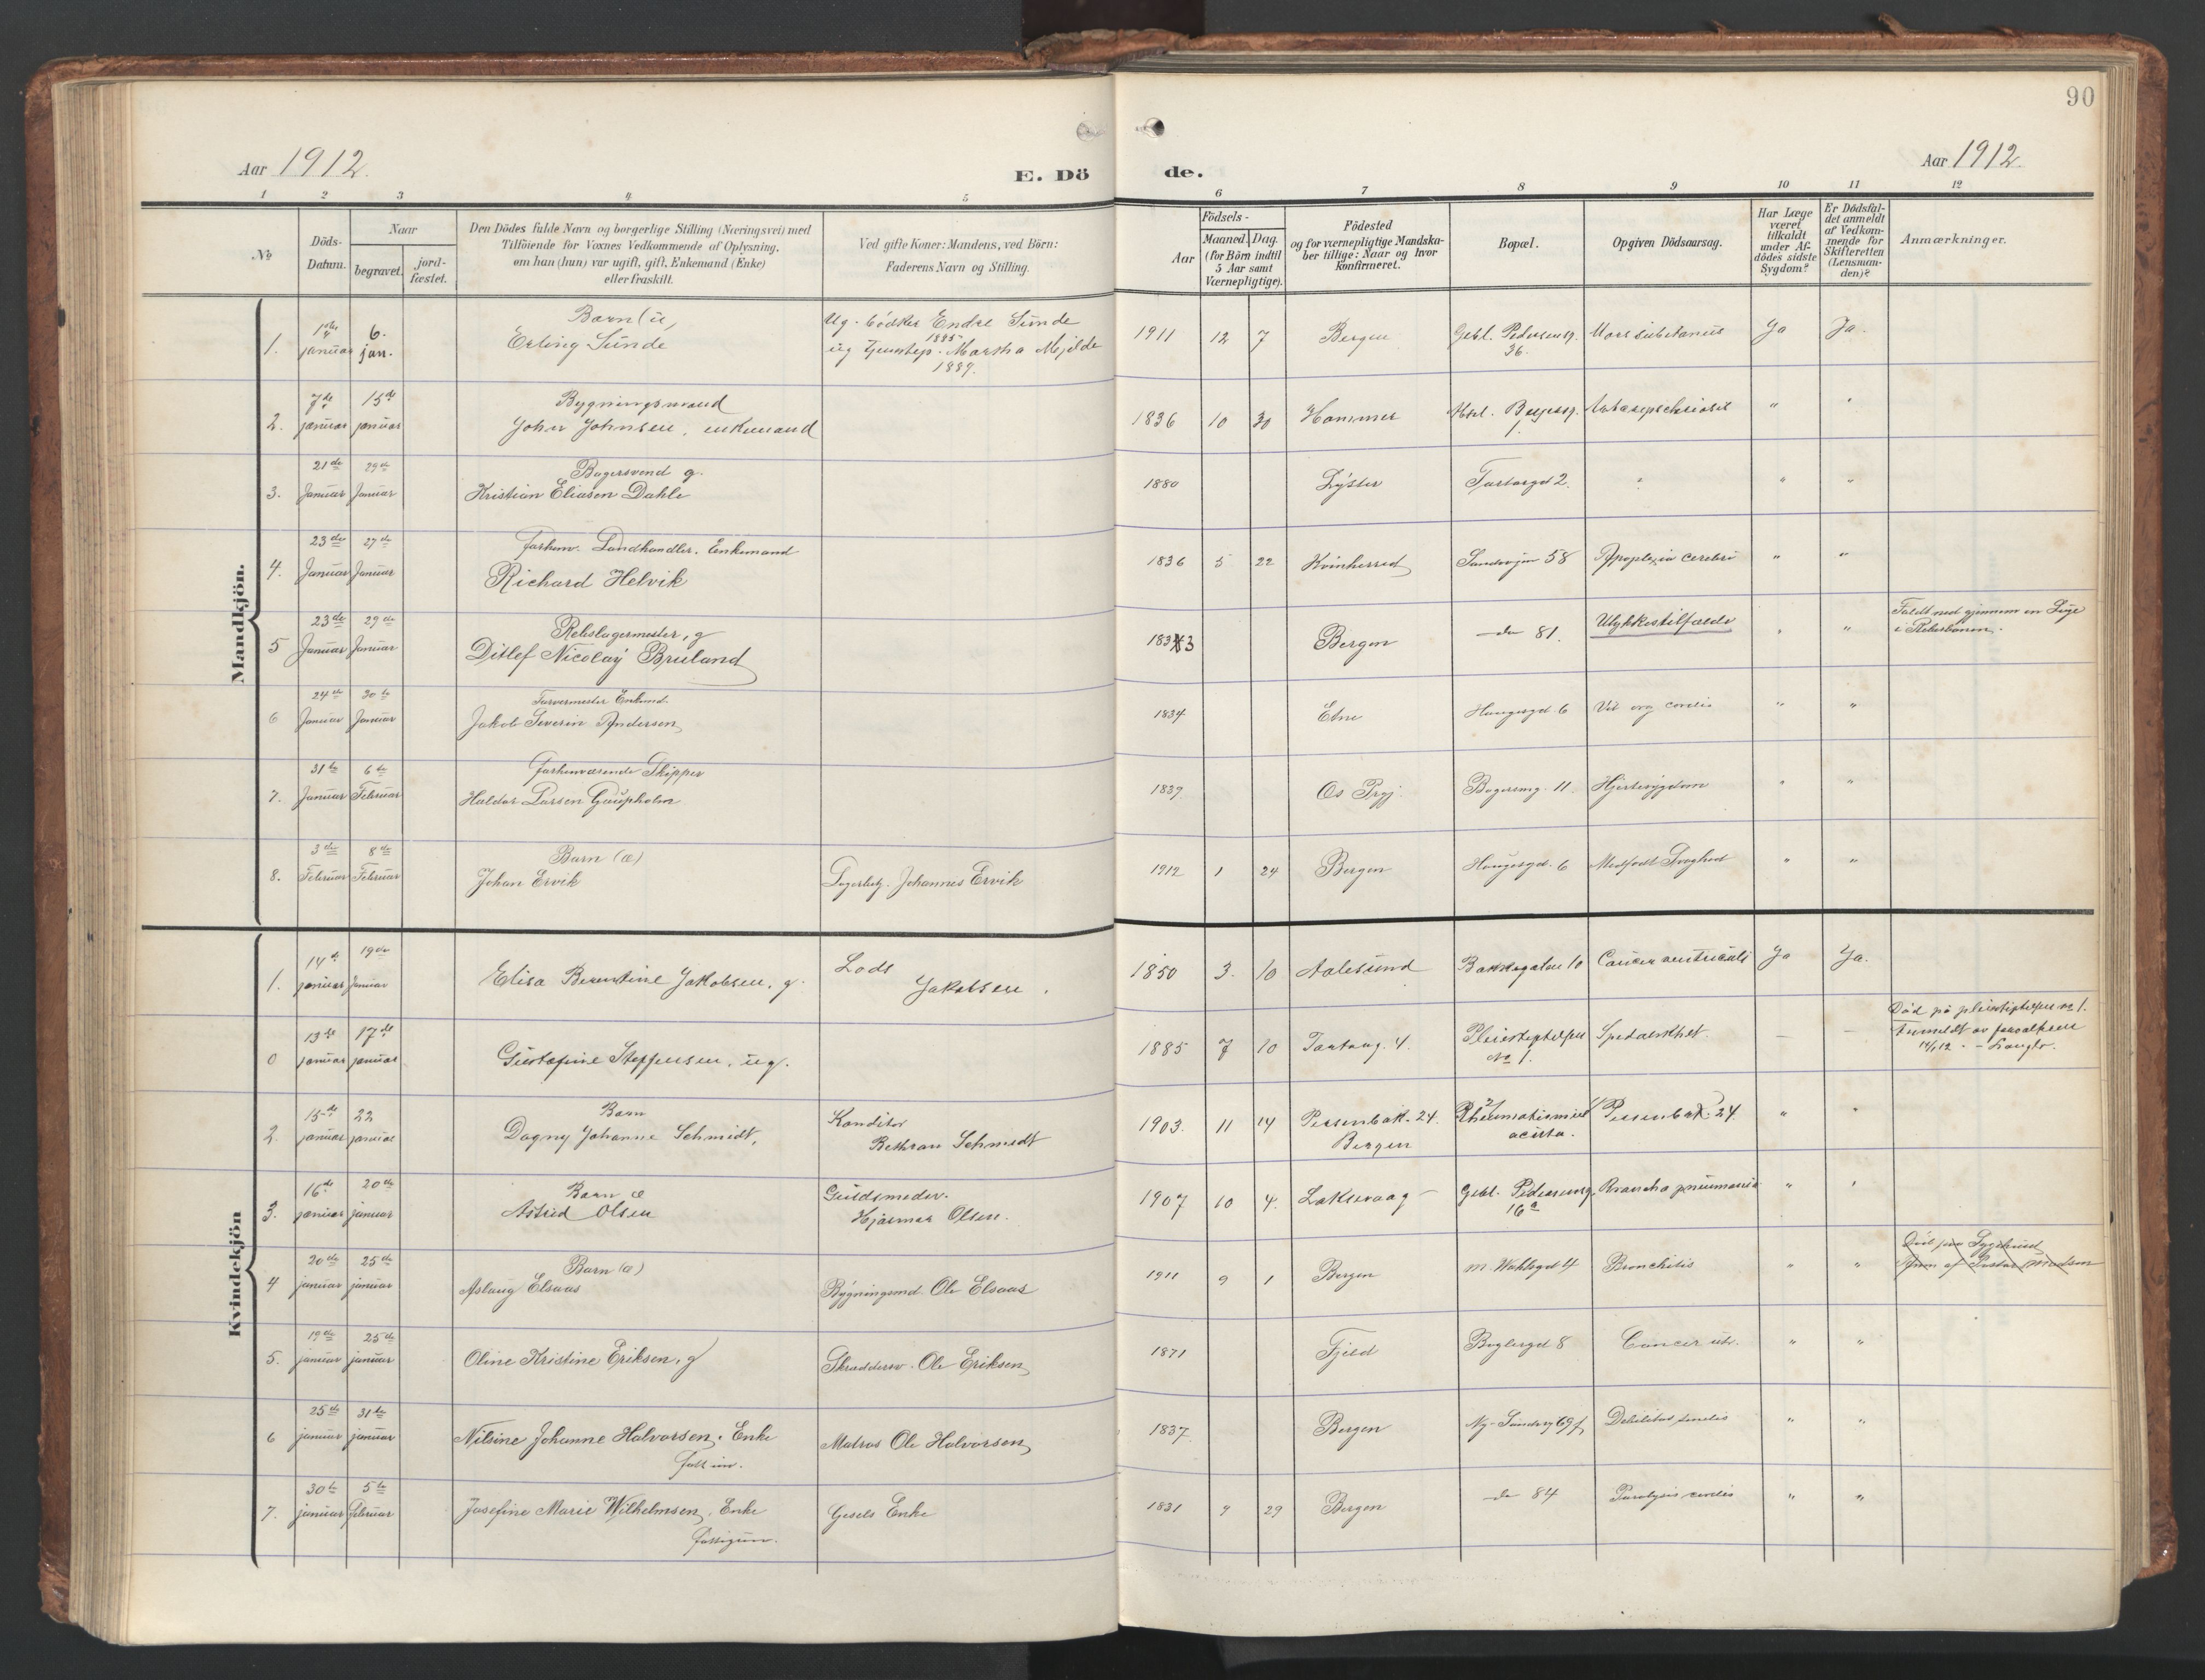 90
Aar 1912.
E. Dö de.
Aar 1912.
1 2 3 4 5 6 7 8 9 10 11 12
No
Döds-Datum.
Naar
begravet.
jord-fæstet.
Den Dödes fulde Navn og borgerlige Stilling (Næringsvei) med
Tilföiende for Voxnes Vedkommende af Oplysning,
om han (hun) var ugift, gift, Enkemand (Enke)
eller fraskilt.
Ved gifte Koner: Mandens, ved Börn:
Faderens Navn og Stilling.
Födsels-
Aar
Maaned. Dag.
(for Börn indtil
5 Aar samt
Værnepligtige).
Födested
og for værnepligtige Mandska-
ber tillige: Naar og hvor
konfirmeret.
Bopæl.
Opgiven Dödsaarsag.
Har Læge
været
tilkaldt
under Af-
dödes sidste
Sygdom?
Er Dödsfal-
det anmeldt
af Vedkom-
mende for
Skifteretten
(Lensman-
den)?
Anmærkninger.
Mandkjön.
1. januar 6. jan. Barn (u
Erling Sunde
Ug. bödker Endre Sunde
1885
ug Martha Mjelde
1889.
1911 12 7 Bergen Gebl. Pedersensg. 36. Mors subitanus Ja Ja.
2. 7de januar 15de januar Bygningsmand
Johan Johnsen, enkemand
1836 10 30 Hammer 1. " "
3. 21de Januar 29de Januar Bagersvend g.
Kristian Eliasen Dahle
1880 Lyster Tartargd 2. " " "
4. 23de Januar 27de Januar Forhenv. Landhandler. Enkemand
Richard Helvik
1836 5 22 Kvinherred Sandvigen 58 Apoplexia cerebri " "
5 23de Januar 29de Januar Rebslagermester, g
Ditlef Nicolay Bruland
1833 Bergen do 81. Ulykkestilfælde " " Faldt ned gjennem en Luge
i Rebslbanen.
6 24de Januar 30te Januar Farvermester Enkmd.
Jakob Severin Andersen
1834 Etne Haugesgd 6 Vit org cordis " "
7. 31te Januar 6te Februar Forhenværende Skipper
Haldor Larsen Gaupholm
1839 Os Prgj. 11. Hjertesygdom " "
8. 3de Februar 8de Februar Barn (æ)
Johan Ervik
Johannes Ervik
1912 1 24 Bergen Haugesgd. 6 Medfødt Svaghed " "
Kvindekjön
1. 14de januar 19de Januar Elisa Berentine Jakobsen, g.
Lods
Jakobsen.
1850 3. 10 Aalesund Bakkegaten 10 Cancer ventriculi Ja Ja.
0 13de januar 17de januar Gustafine Steffensen, ug.
1885 7 10 Tartarg. 4. Pleiestiftelsen No 1. Spedalskhet. — — Död på pleiestiftelsen no 1.
Anmeldt av
14/1 12.
2. 15de januar 22 januar Barn
Dagny Johanne Schmidt,
Konditor
Bethran Schmidt
1903. 11 14 Persenbak. 24.
Bergen Rheumatismus
acuta. Persenbak. 24 " "
3. 16de januar 20de januar Barn æ
Astrid Olsen
Guldsmedsv.
Hjalmar Olsen.
1907 10 4. Laksevaag Gebl. Pedersensg.
16a Broncho pneumonia " "
4 20de januar 25de januar Barn (æ)
Aslaug Elsaas
Bygningsmd. Ole Elsaas
1911 9 1 Bergen M. Wahlsgd 4 Bronchitis " " Död paa Sygehuset
Anm af Pastor Madsen
5. 19de januar 25de januar Oline Kristine Eriksen, g
Skræddersv. Ole Eriksen
1871 Fjeld Boglergd 8 Cancer utr. " "
6 25de januar 31te januar Nilsine Johanne Halvorsen, Enke
Matros Ole Halvorsen
1837 Bergen Ny-Sandvg 69 f Debilitas senilis " "
7. 30te januar 5te Februar Josefine Marie Wilhelmsen, Enke
Fattigum.
Gesels Enke
1831 9 29 Bergen do 84 Paralysis cordis " "